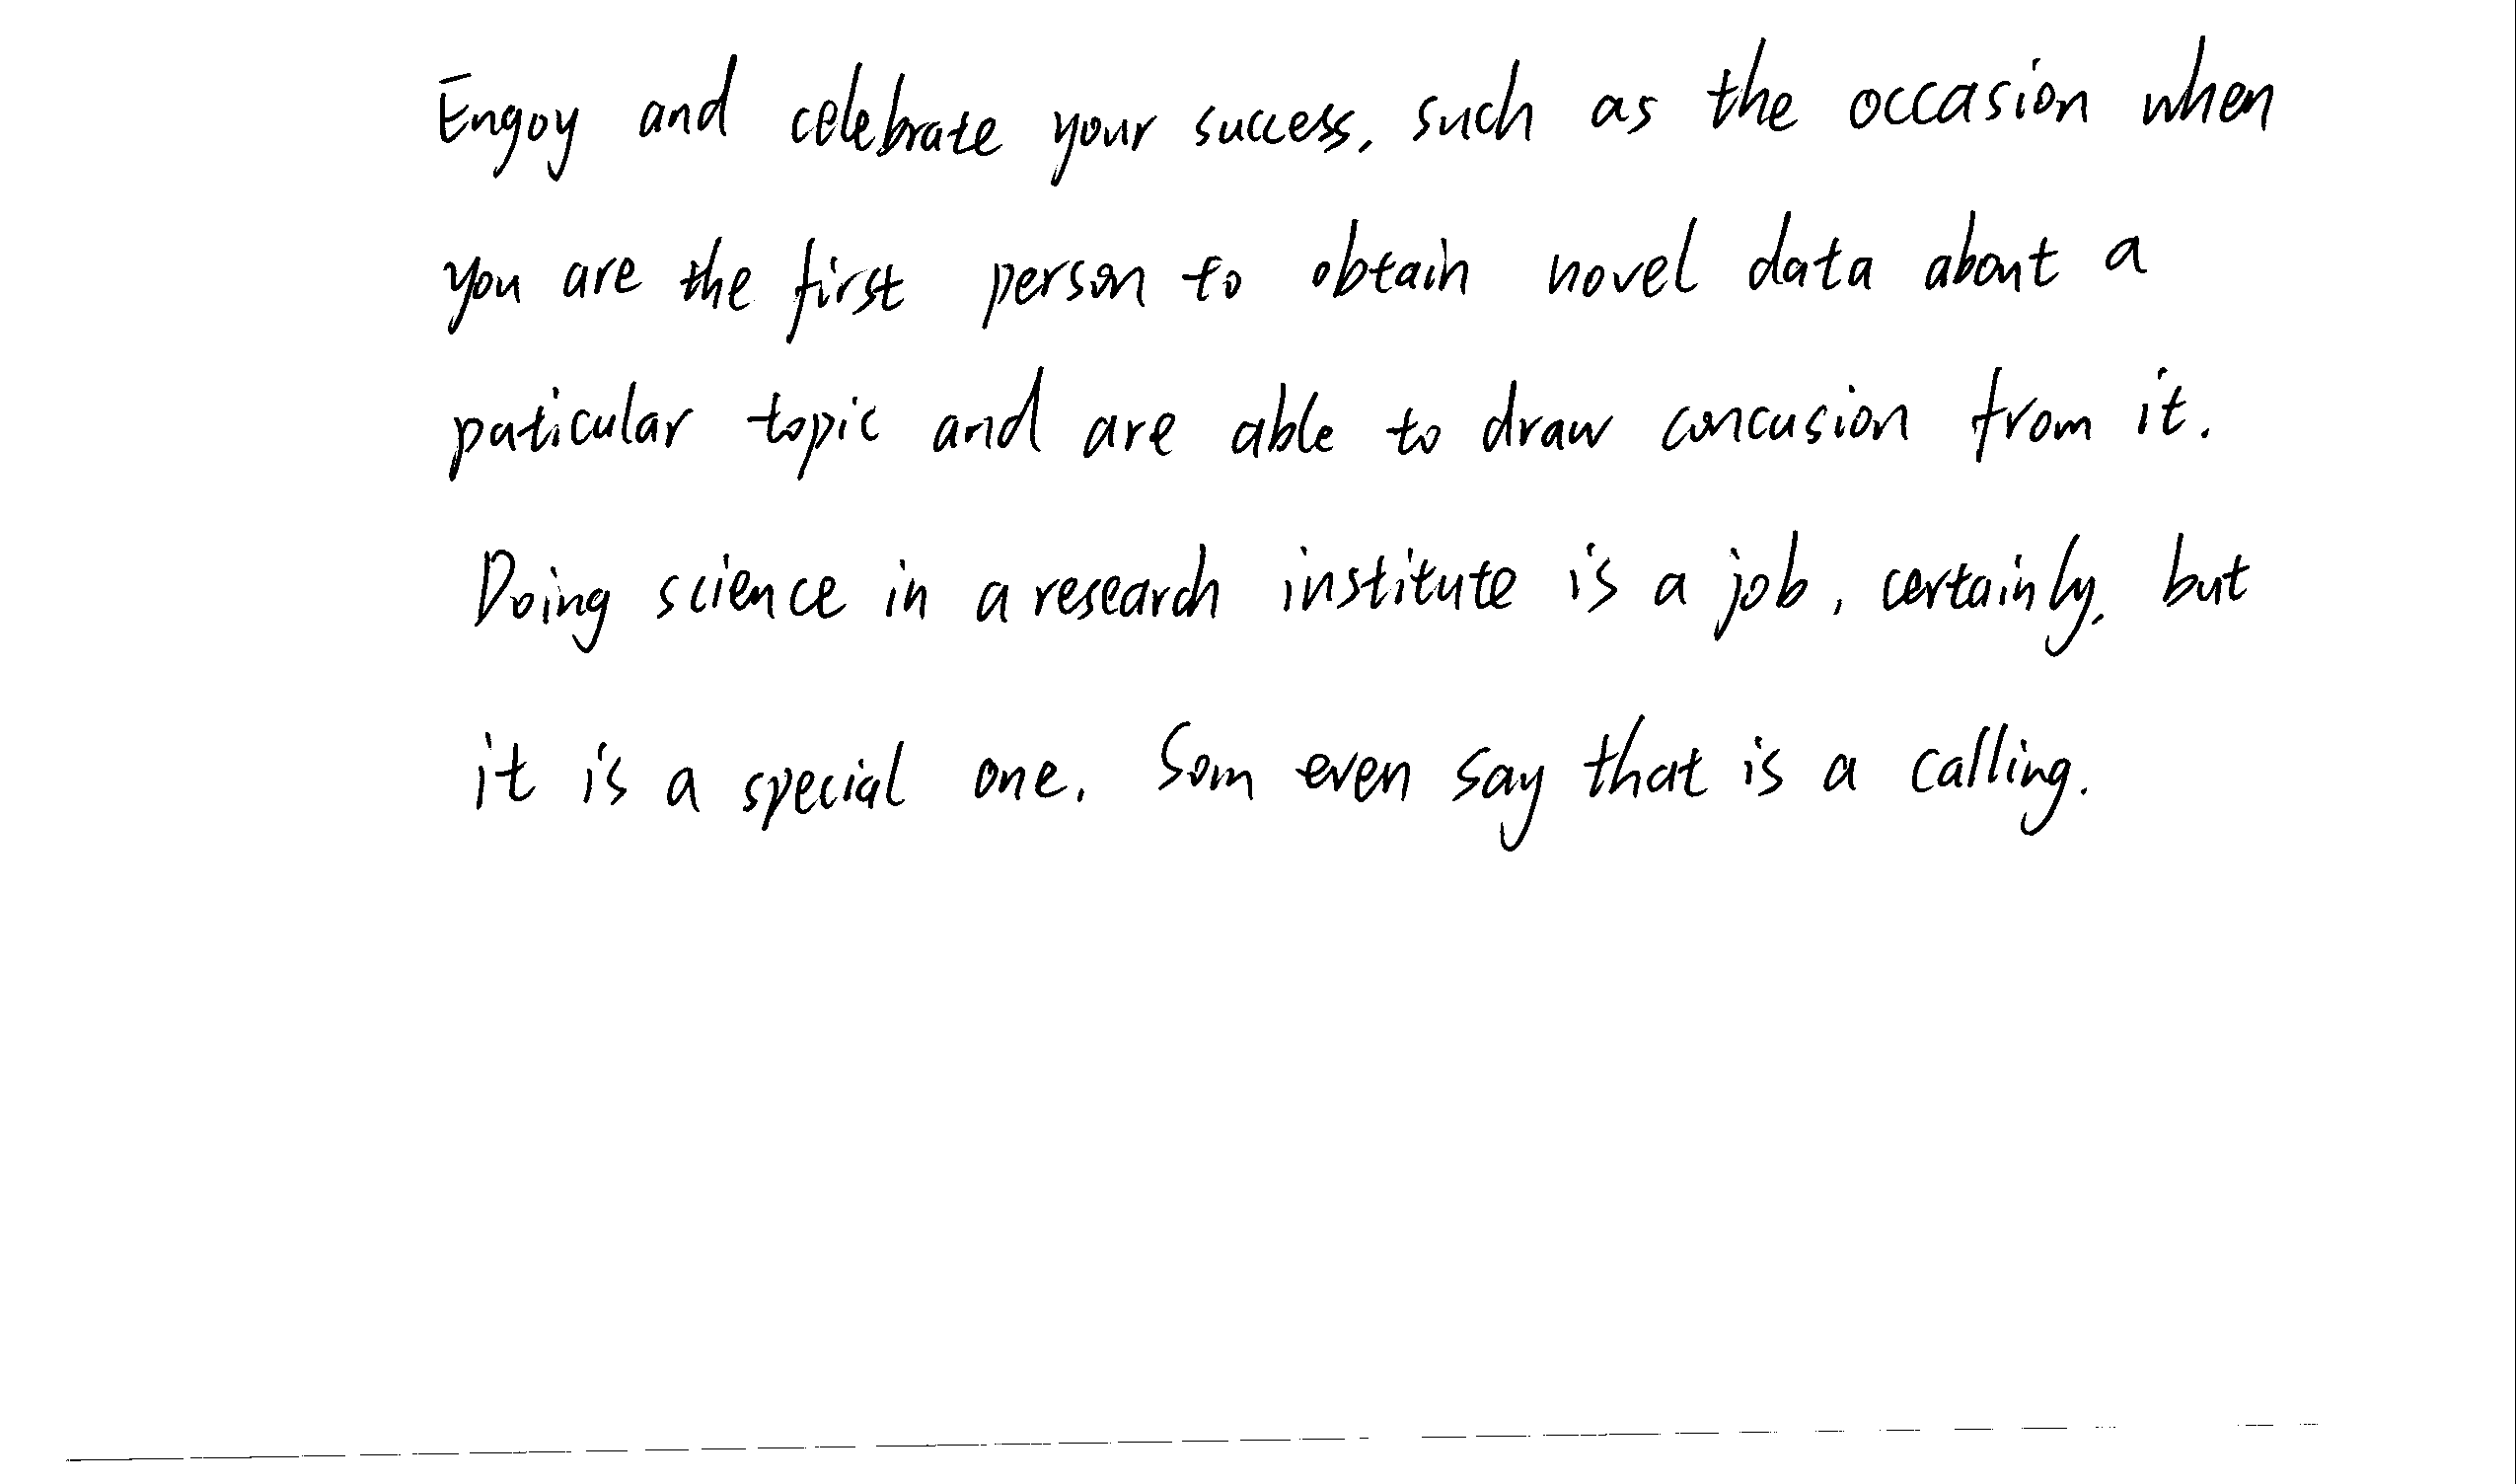 Engoy and celebrate your success, such as the occasion when
you are the first person to obtain novel data about a
paticular topic and are able to draw concusion from it.
Doing science in a research institute is a job, certainly, but
it is a special one. Som even say that is a calling.